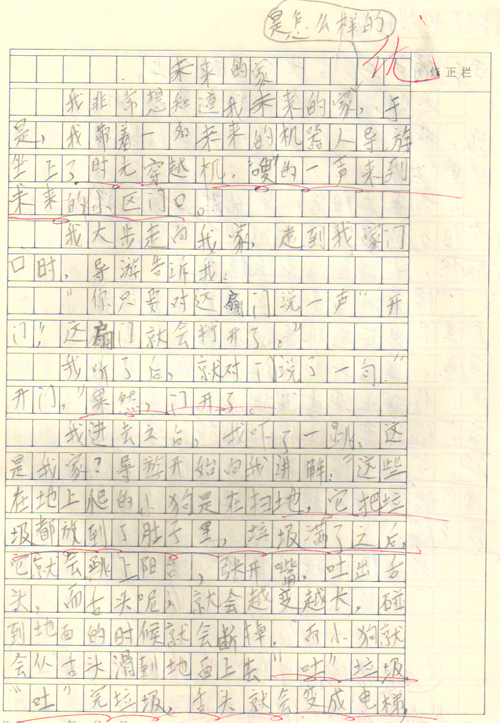 是怎么样的
优
修正栏
未来的家
我非常想知道我未来的家,于
是,我带着一名未来的机器人导游
坐上了时光穿越机,“嗖”的一声来到
未来的小区门口。
我大步走向我家,走到我家门
口时,导游告诉我:
“你只要对这扇门说一声“开
门”,这扇门就会打开了。”
我听了后,就对门说了一句:“
开门,”果然,门开了。
我进去之后,我吓了一跳,这
是我家?导游开始向我讲解:“这些
在地上爬的小狗是在扫地,它把垃
圾都放到了肚子里,垃圾满了之后,
它就会跳上阳台,张开嘴,吐出舌
头,而舌头呢,就会越变越长,碰
到地面的时候就会断掉,而小狗就
会从舌头滑到地面上去“吐”垃圾,
“吐”完垃圾,舌头就会变成电梯,